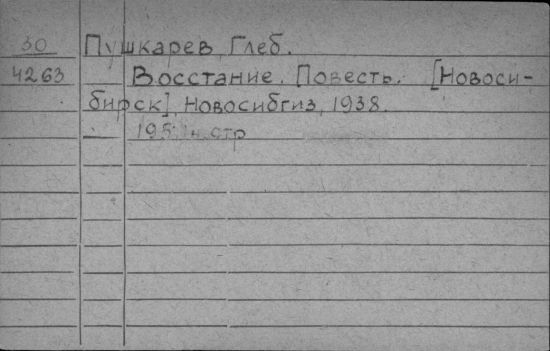 30 Пушкарев, Глеб.
4263 Восстание. Повесть. [Новоси-
бирск], Новосибгиз, 1938.
стр